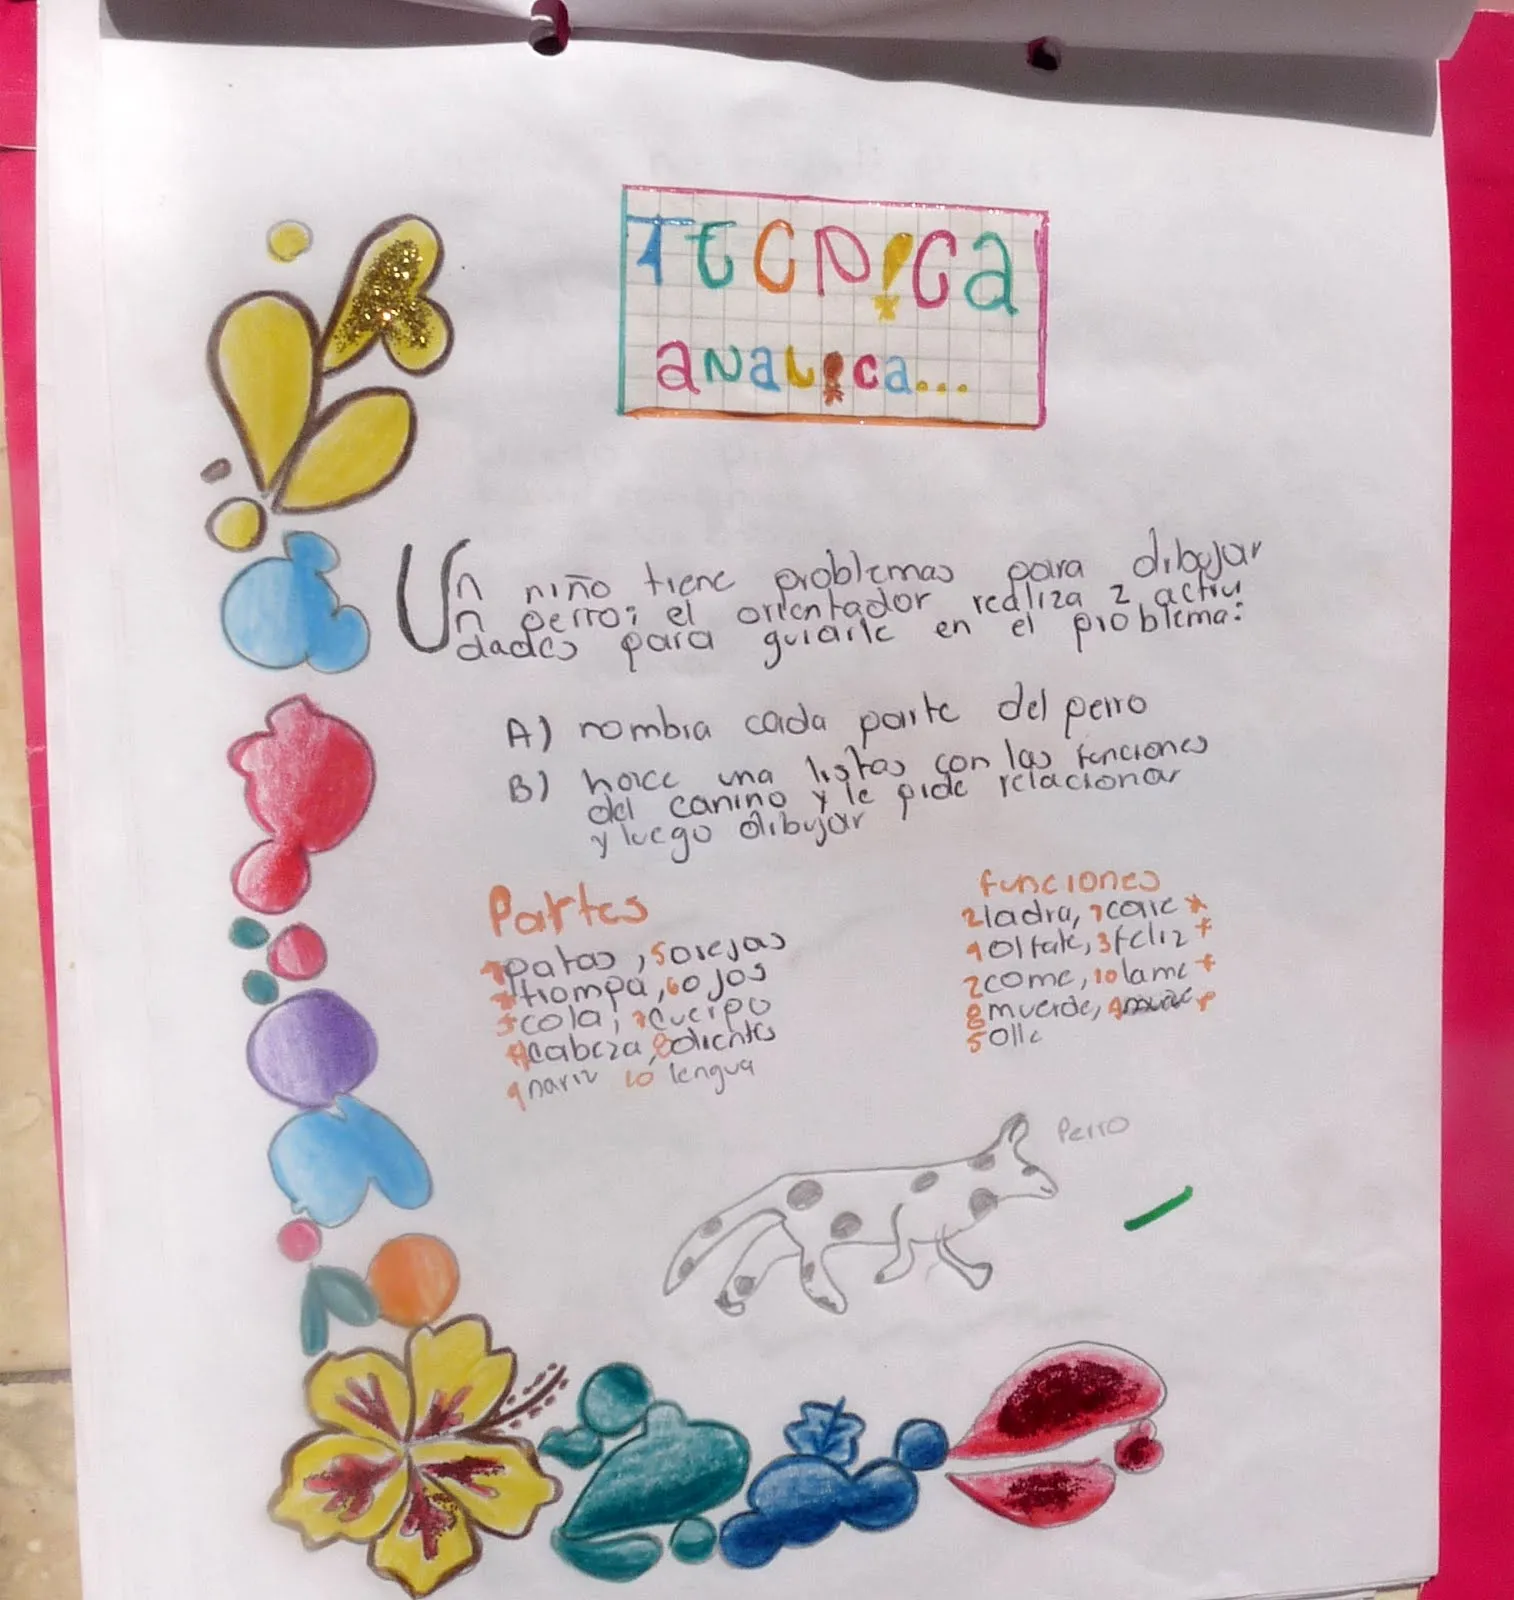 TECNiCA
ANALiCA...
Un niño tiene problemas para dibujar
n perro; el orientador realiza 2 activi
dades para guiarle en el problema:
A) nombra cada parte del perro
B) hace una listas con las funciones
del canino y le pide relacionar
y luego dibujar
Partes
patas, 5 orejas
trompa, 6 ojos
3 cola, 7 cuerpo
4 cabeza, 8 dientes
9 nariz 10 lengua
funciones
2 ladra, 1 corre
9 olfate, 3 feliz
2 come, 10 lame
8 muerde,
5 olle
Perro